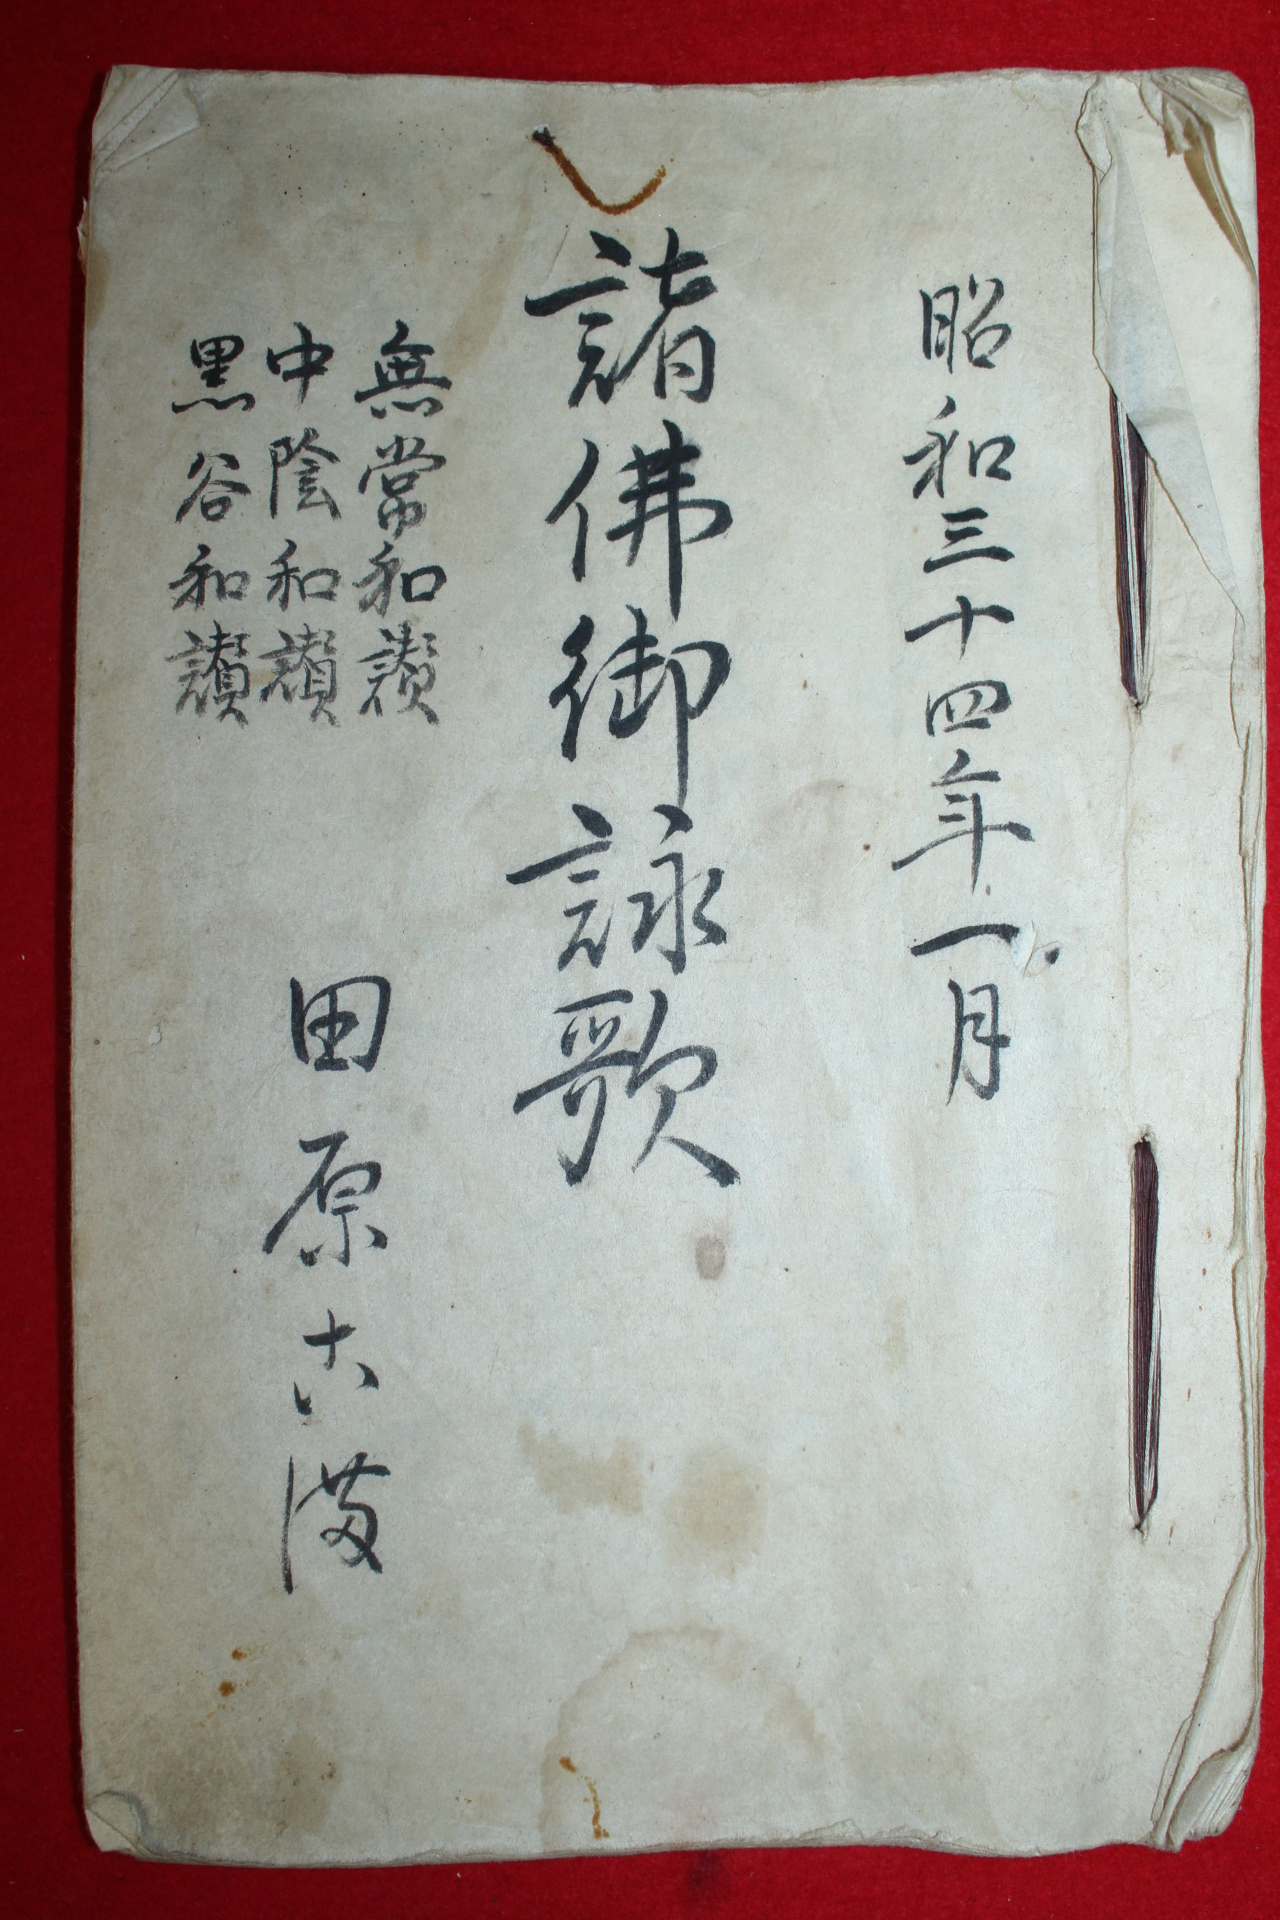 昭和三十四年一月
諸佛御詠歌
無常和讃
中陰和讃
黒谷和讃
田原六満